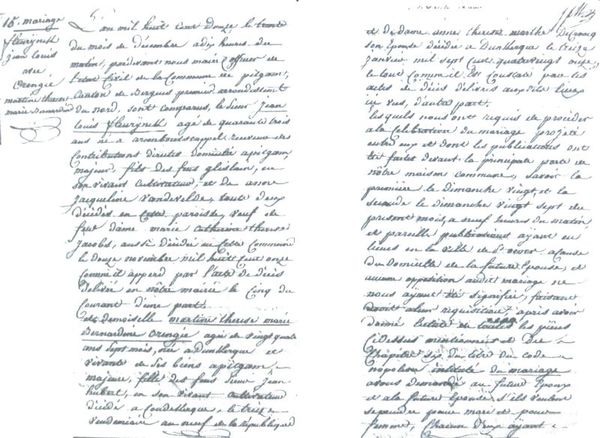 16e mariage
fleurynck
jean louis
avec
Orengie
martine therese
marie bernardine
L'an mil huit cent Douze le trente
du mois de décembre a dix heures du
matin, pardevant nous maire officier de
l'etat Civil de la Commune de pitgam,
Canton de Bergues premier arrondissement
du nord, sont comparus, le Sieur Jean
Louis fleurynck agé de quarante trois
ans né a arembouscappel receveur des
Contributions directes domicilié a pitgam,
majeur, fils des feus ghislain, en
son vivant Cultivateur, et de anne
Jacqueline Vandevelde toute deux
décédés en cette paroisse, veuf de
feue dame marie Catherine therese
Jacobs, aussi décédée en cette Commune
le douze novembre mil huit cent onze
Comme il appert par l'acte de décès
délivré en nôtre mairie le Cinq du
Courant d'une part.
et demoiselle martine therese marie
Bernardine Orengie agée de vingt quatre
ans sept mois, née a Dunkerque et
vivante de ses biens a pitgam
majeure, fille des feus Sieur Jean
hubert, en son vivant Cultivateur
décédé a Coudekerque, le treize
vendemiaire au neuf de la république
et de dame anne therese marthe
son épouse décédée a Dunkerque le treize
janvier mil sept cent quatrevingt onze,
le tout Comme il est Constaté par les
actes de décès délivrés auxdits lieux
ici vus, d'autre part.
lesquels nous ont requis de procéder
a la Célébration du mariage projeté
entre eux et dont les publications ont
été faites devant la principale porte de
nôtre maison commune, Savoir la
premiere le dimanche vingt, et la
seconde le dimanche vingt sept du
présent mois, a neuf heures du matin
et pareille publications ayant eu
lieu en la ville de a cause
du domicile de la future Epouse, et
aucune opposition audit mariage ne
nous ayant été signifiée, faisant
droit a leur requisition, après avoir
donné lecture de toutes les pieces
Cidessus mentionnées et Du
Chapitre six du titre du code
napoleon intitulé du mariage
avons demandé au futur Epoux
et a la future Epouse s'ils veulent
se prendre pour mari et pour
femme, Chacun d'eux ayant